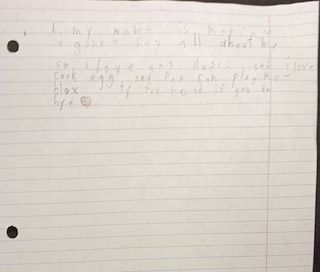 hi my name is
a gonna say all about my
so i love art music and i love
cook egg and for fun play Ro-
blox ty for
bye